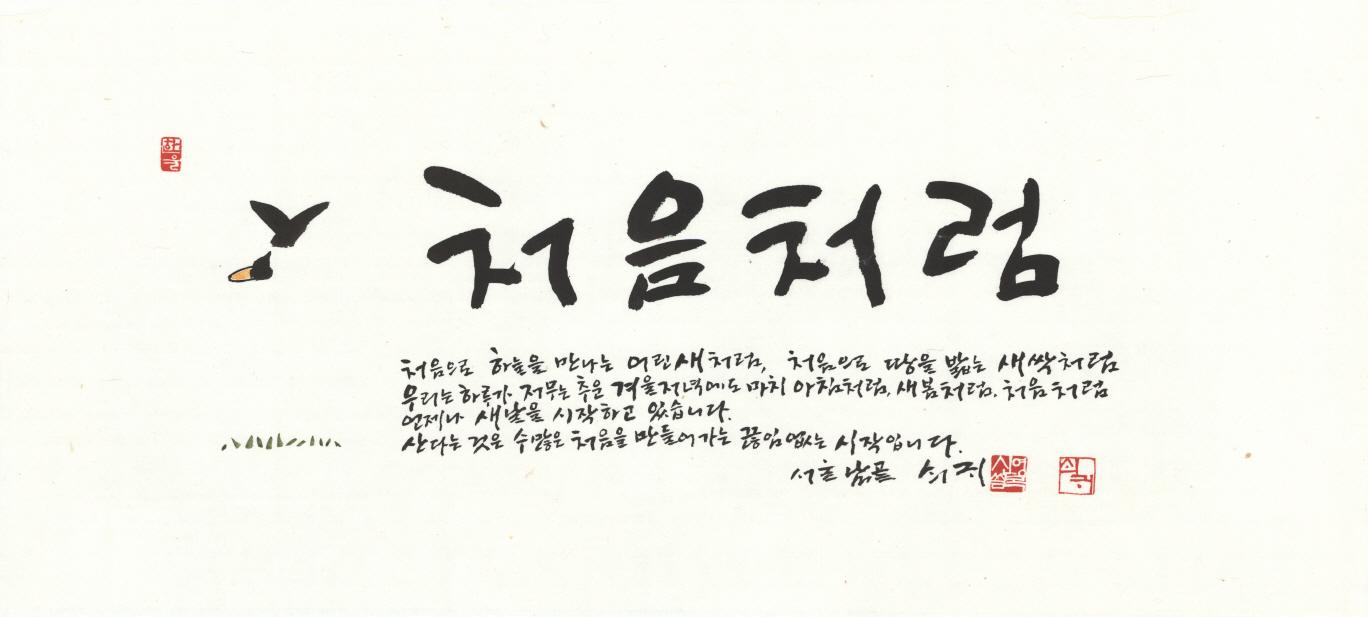 처음처럼
처음으로 하늘을 만나는 어린새처럼, 처음으로 땅을 밟는 새싹처럼
우리는 하루가 저무는 추운 겨울저녁에도 마치 아침처럼, 새봄처럼, 처음처럼
언제나 새날을 시작하고 있습니다.
산다는 것은 수많은 처음을 만들어가는 끊임없는 시작입니다.
서호남골 쇠귀